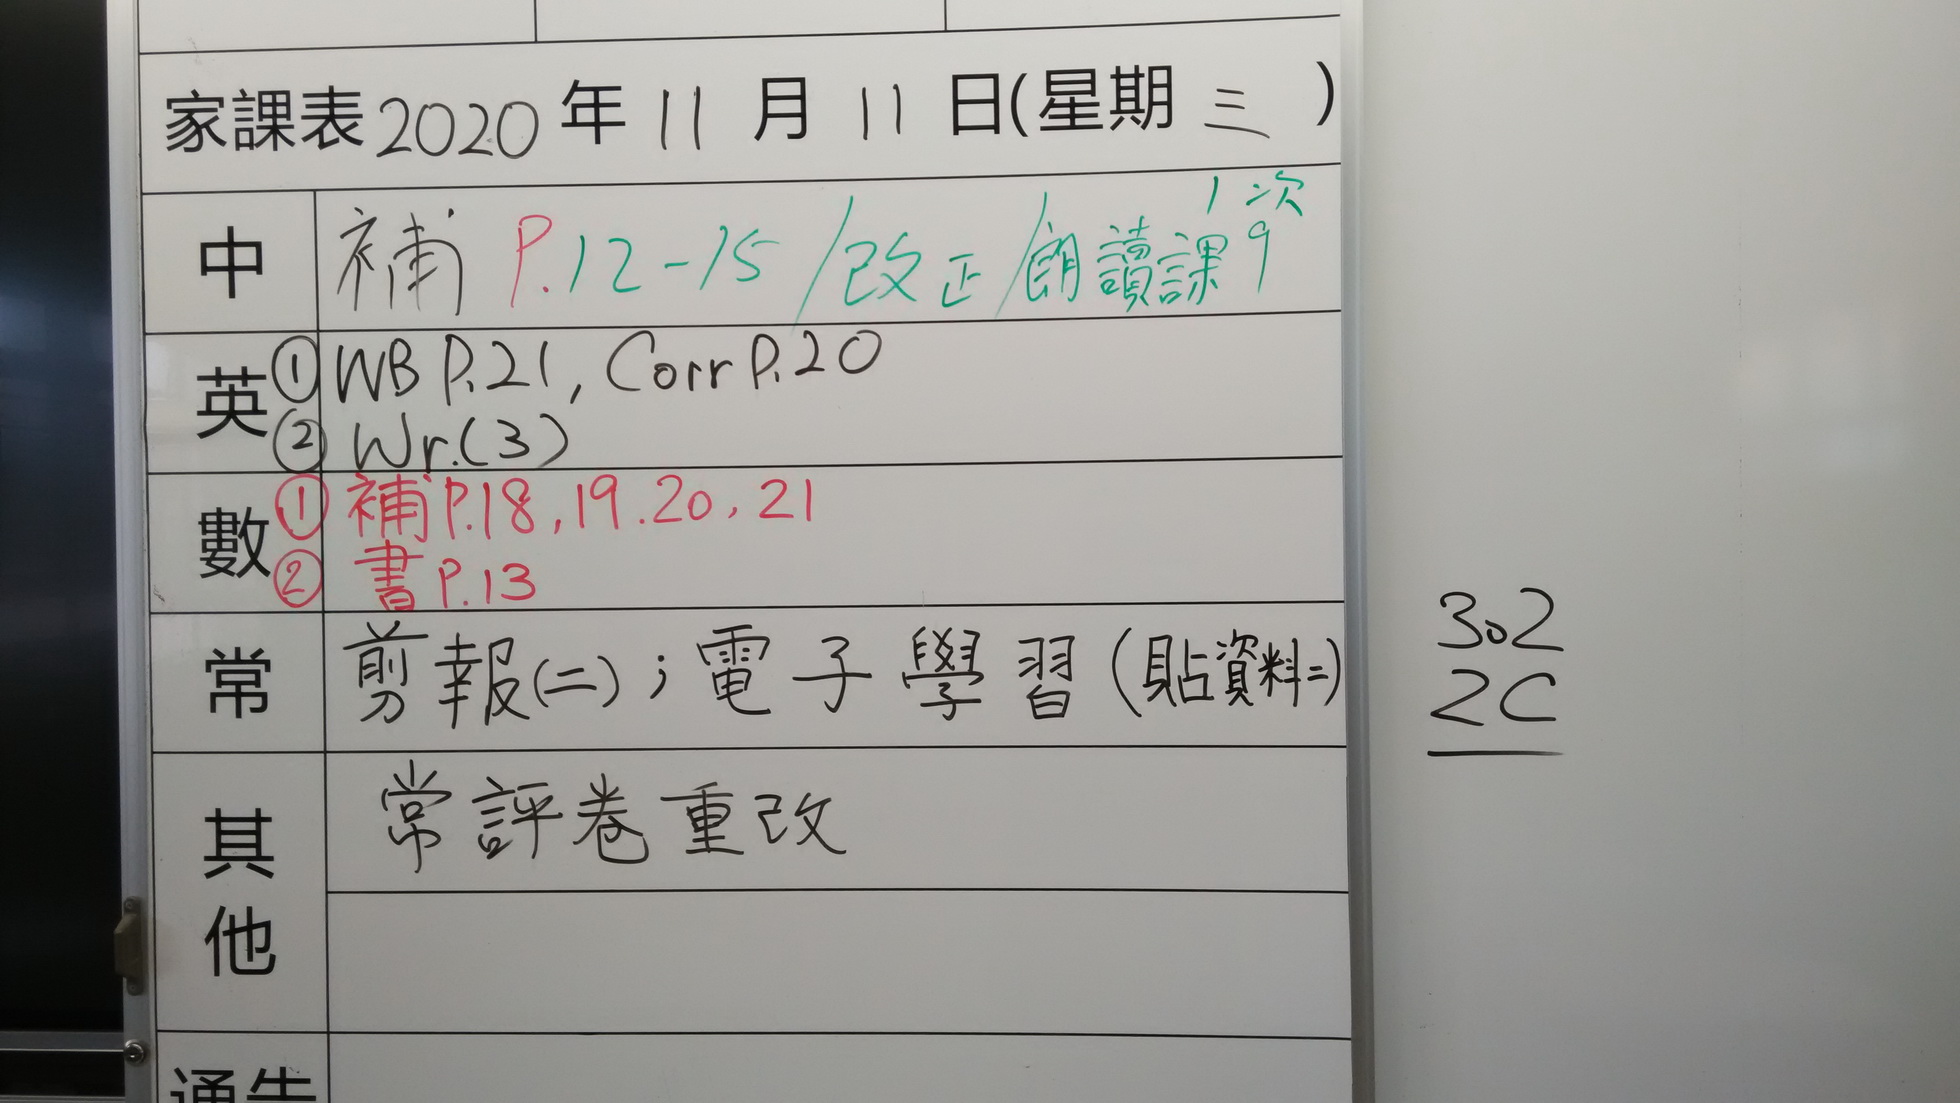 家課表2020年11月11日(星期三)
中 補 P.12-15/改正/朗讀課9 1次
英 ① WB P.21, Corr P.20
② Wr.(3)
數 ① 補P.18,19.20,21
② 書P.13
常 剪報(二);電子學習(貼資料二)
302
2C
其他 常評卷重改
通告